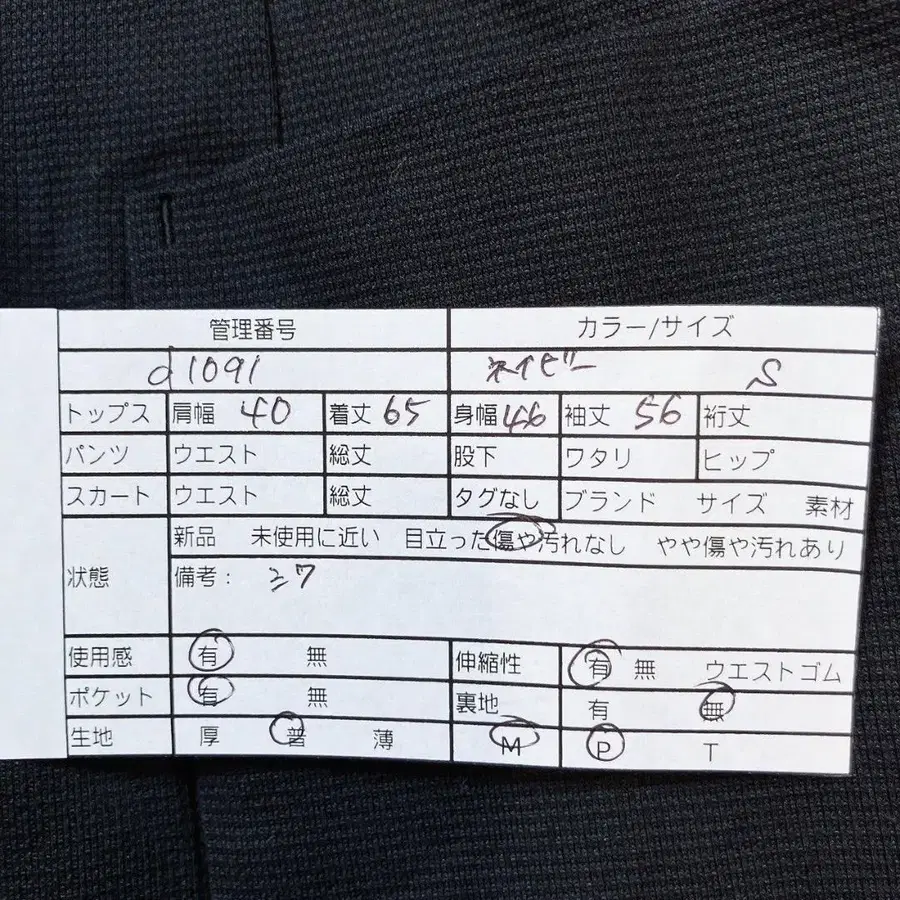 管理番号 カラー/サイズ
d1091 ネイビー S
トップス 肩幅 40 着丈 65 身幅 46 袖丈 56 裄丈
パンツ ウエスト 総丈 股下 ワタリ ヒップ
スカート ウエスト 総丈 タグなし ブランド サイズ 素材
状態 新品 未使用に近い 目立った傷や汚れなし やや傷や汚れあり
備考：
使用感 有 無 伸縮性 有 無 ウエストゴム
ポケット 有 無 裏地 有 無
生地 厚 普 薄 M P T